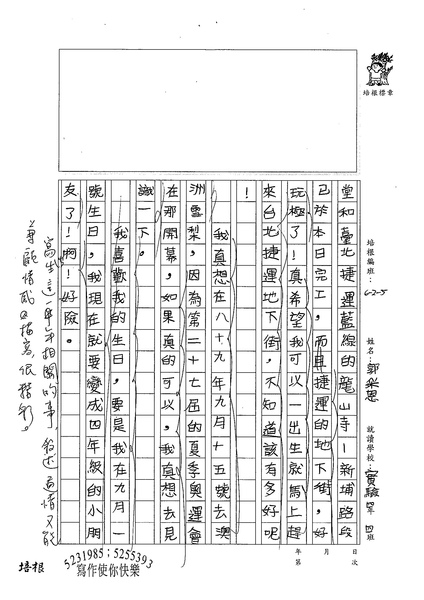 培根標章
培根編班：6-2-5
姓名：郭樂恩
就讀學校：實驗 四年 四班
年 月 日
第 次
堂和臺北捷運藍線的龍山寺—新埔路段
已於本日完工，而且捷運的地下街，好
玩極了！真希望我可以一出生就馬上趕
來台北捷運地下街，不知道該有多好呢
！
我真想在八十九年九月十五號去澳
洲雪梨，因為第二十七屆的夏季奧運會
在那開幕，如果真的可以，我真想去見
識一下。
我喜歡我的生日，要是我在九月一
號生日，我現在就要變成四年級的小朋
友了！啊！好險。
寫出這一年來相關的事，敘述
描寫，很精彩。
培根
5231985；5255393
寫作使你快樂